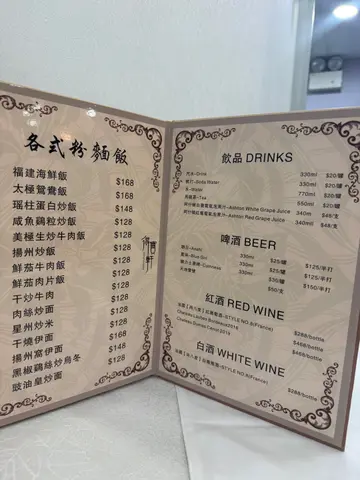 各式粉麵飯
福建海鮮飯 $168
太極鴛鴦飯 $168
瑤柱蛋白炒飯 $148
咸魚鷄粒炒飯 $128
美極生炒牛肉飯 $128
揚州炒飯 $128
鮮茄牛肉飯 $128
鮮茄肉片飯 $128
干炒牛肉 $128
肉絲炒面 $128
星州炒米 $128
干燒伊面 $128
揚州窩伊面 $148
黑椒鷄絲炒烏冬 $128
豉油皇炒面 $128
飲品 DRINKS
汽水-Drink 330ml $20/罐
梳打-Soda Water 330ml $20/罐
水-Water 770ml $20/罐
Tea 550ml $20/罐
Ashton White Grape Juice 340m $48/支
Ashton Red Grape Juice 340ml $48/支
啤酒 BEER
Asahi 330ml $25/罐 $125/半打
藍妹-Blue Girl 330ml $25/罐 $125/半打
Guinness 330ml $30/罐 $150/半打
$50/支
紅酒 RED WINE
STYLE NO.8(France) $288/bottle
$468/bottle
$468/bottle
白酒 WHITE WINE
STYLE NO.8(France) $288/bottle